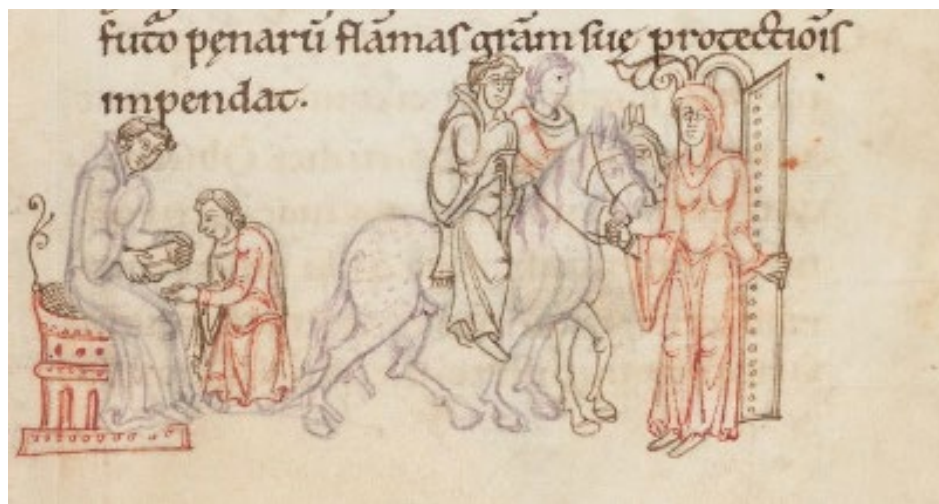 futo pęnarū flāmas grām sue protectiōis
impendat.